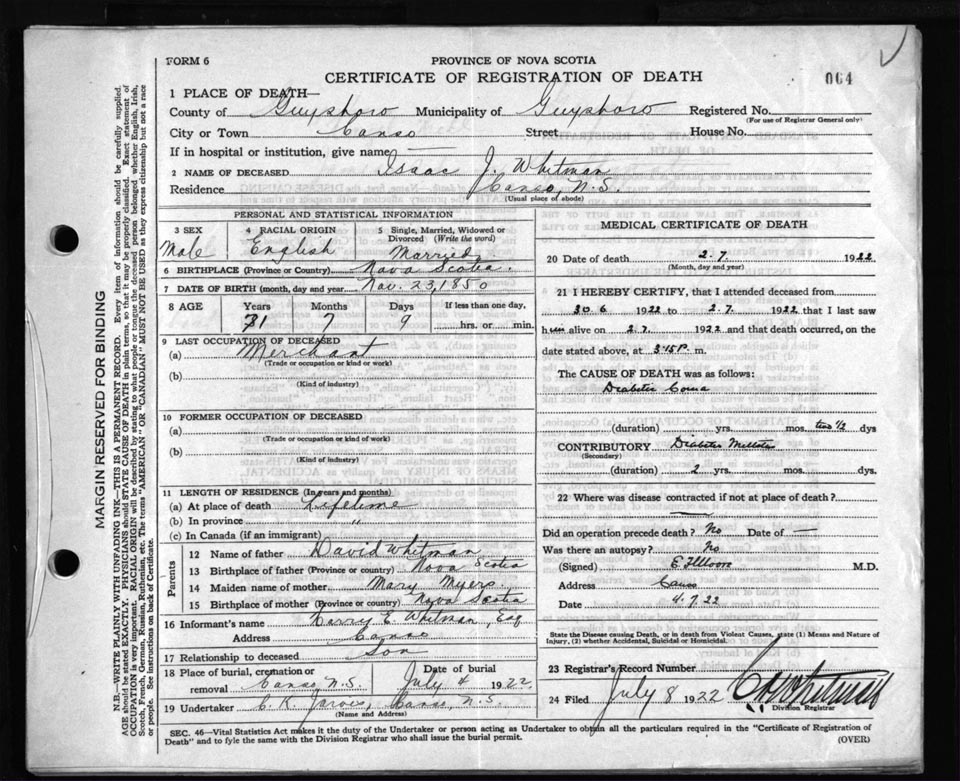 FORM 6
PROVINCE OF NOVA SCOTIA
CERTIFICATE OF REGISTRATION OF DEATH
064
1 PLACE OF DEATH—
County of Guysboro Municipality of Guysboro Registered No.
(For use of Registrar General only)
City or Town Canso Street House No.
If in hospital or institution, give name —
2 NAME OF DECEASED Isaac J. Whitman
Residence Canso, N.S.
(Usual place of abode)
PERSONAL AND STATISTICAL INFORMATION
3 SEX
Male
4 RACIAL ORIGIN
English
5 Single, Married, Widowed or Divorced (Write the word)
Married
6 BIRTHPLACE (Province or Country) Nova Scotia.
7 DATE OF BIRTH (month, day and year) Nov. 23, 1850
8 AGE Years Months Days If less than one day,
71 7 9 hrs. or min.
9 LAST OCCUPATION OF DECEASED
(a) Merchant
(Trade or occupation or kind or work)
(b)
(Kind of industry)
10 FORMER OCCUPATION OF DECEASED
(a)
(Trade or occupation or kind of work)
(b)
(Kind of industry)
11 LENGTH OF RESIDENCE (In years and months)
(a) At place of death Lifetime
(b) In province "
(c) In Canada (if an immigrant)
Parents
12 Name of father David Whitman
13 Birthplace of father (Province or country) Nova Scotia
14 Maiden name of mother Mary Myers.
15 Birthplace of mother (Province or country) Nova Scotia
16 Informant's name Harry E. Whitman, Esq
Address Canso
17 Relationship to deceased Son
18 Place of burial, cremation or removal Canso N.S.
Date of burial July 4 1922
19 Undertaker C. K. Jarvis, Canso, N.S.
(Name and Address)
MEDICAL CERTIFICATE OF DEATH
20 Date of death 2.7. 1922
(Month, day and year)
21 I HEREBY CERTIFY, that I attended deceased from
30.6 1922 to 2.7. 1922 that I last saw
him alive on 2.7. 1922 and that death occurred, on the
date stated above, at 3.45 P. m.
The CAUSE OF DEATH was as follows:
Diabetic Coma
(duration) yrs. mos. two 1/2 dys
CONTRIBUTORY Diabetes Mellitus
(Secondary)
(duration) 2 yrs. mos. dys.
22 Where was disease contracted if not at place of death?
—
Did an operation precede death? No Date of —
Was there an autopsy? No
(Signed) M.D.
Address Canso
Date 4.7.22
State the Disease causing Death, or in death from Violent Causes, state (1) Means and Nature of
Injury, (2) whether Accidental, Suicidal or Homicidal.
23 Registrar's Record Number
24 Filed July 8 1922 Whitman
Division Registrar
SEC. 46—Vital Statistics Act makes it the duty of the Undertaker or person acting as Undertaker to obtain all the particulars required in the "Certificate of Registration of
Death" and to fyle the same with the Division Registrar who shall issue the burial permit.
(OVER)
MARGIN RESERVED FOR BINDING
N.B.—WRITE PLAINLY WITH UNFADING INK—THIS IS A PERMANENT RECORD. Every item of information should be carefully supplied.
AGE should be stated EXACTLY. PHYSICIANS should STATE CAUSE OF DEATH in plain terms, so that it may be properly classified. Exact statement of
OCCUPATION is very important. RACIAL ORIGIN will be described by stating to what people or tongue the deceased person belonged whether English, Irish,
Scotch, French, German, Russian, Ruthenian, etc. The terms "AMERICAN" OR "CANADIAN" MUST NOT BE USED as they express citizenship but not a race
or people. See instructions on back of Certificate.